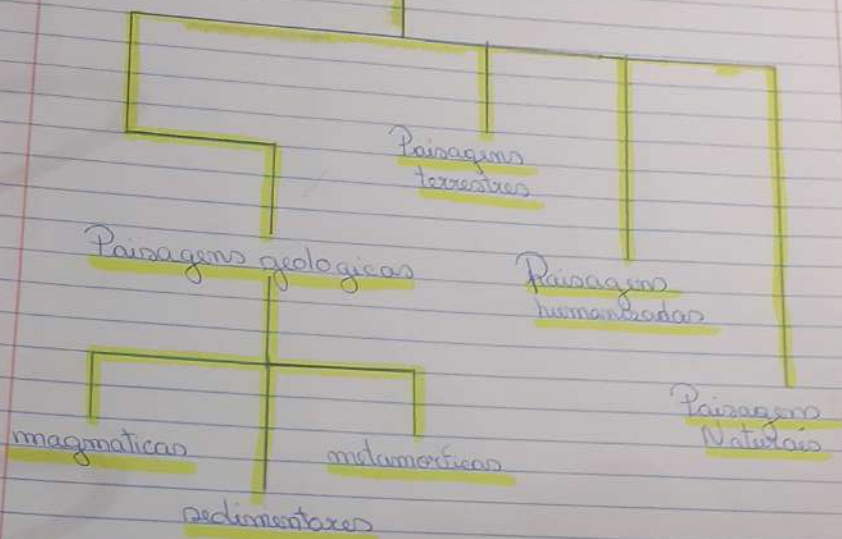 Paisagens
terrestres
Paisagens geologicas
Paisagens
humanizadas
Paisagens
Naturais
magmaticas
metamorficas
sedimentares